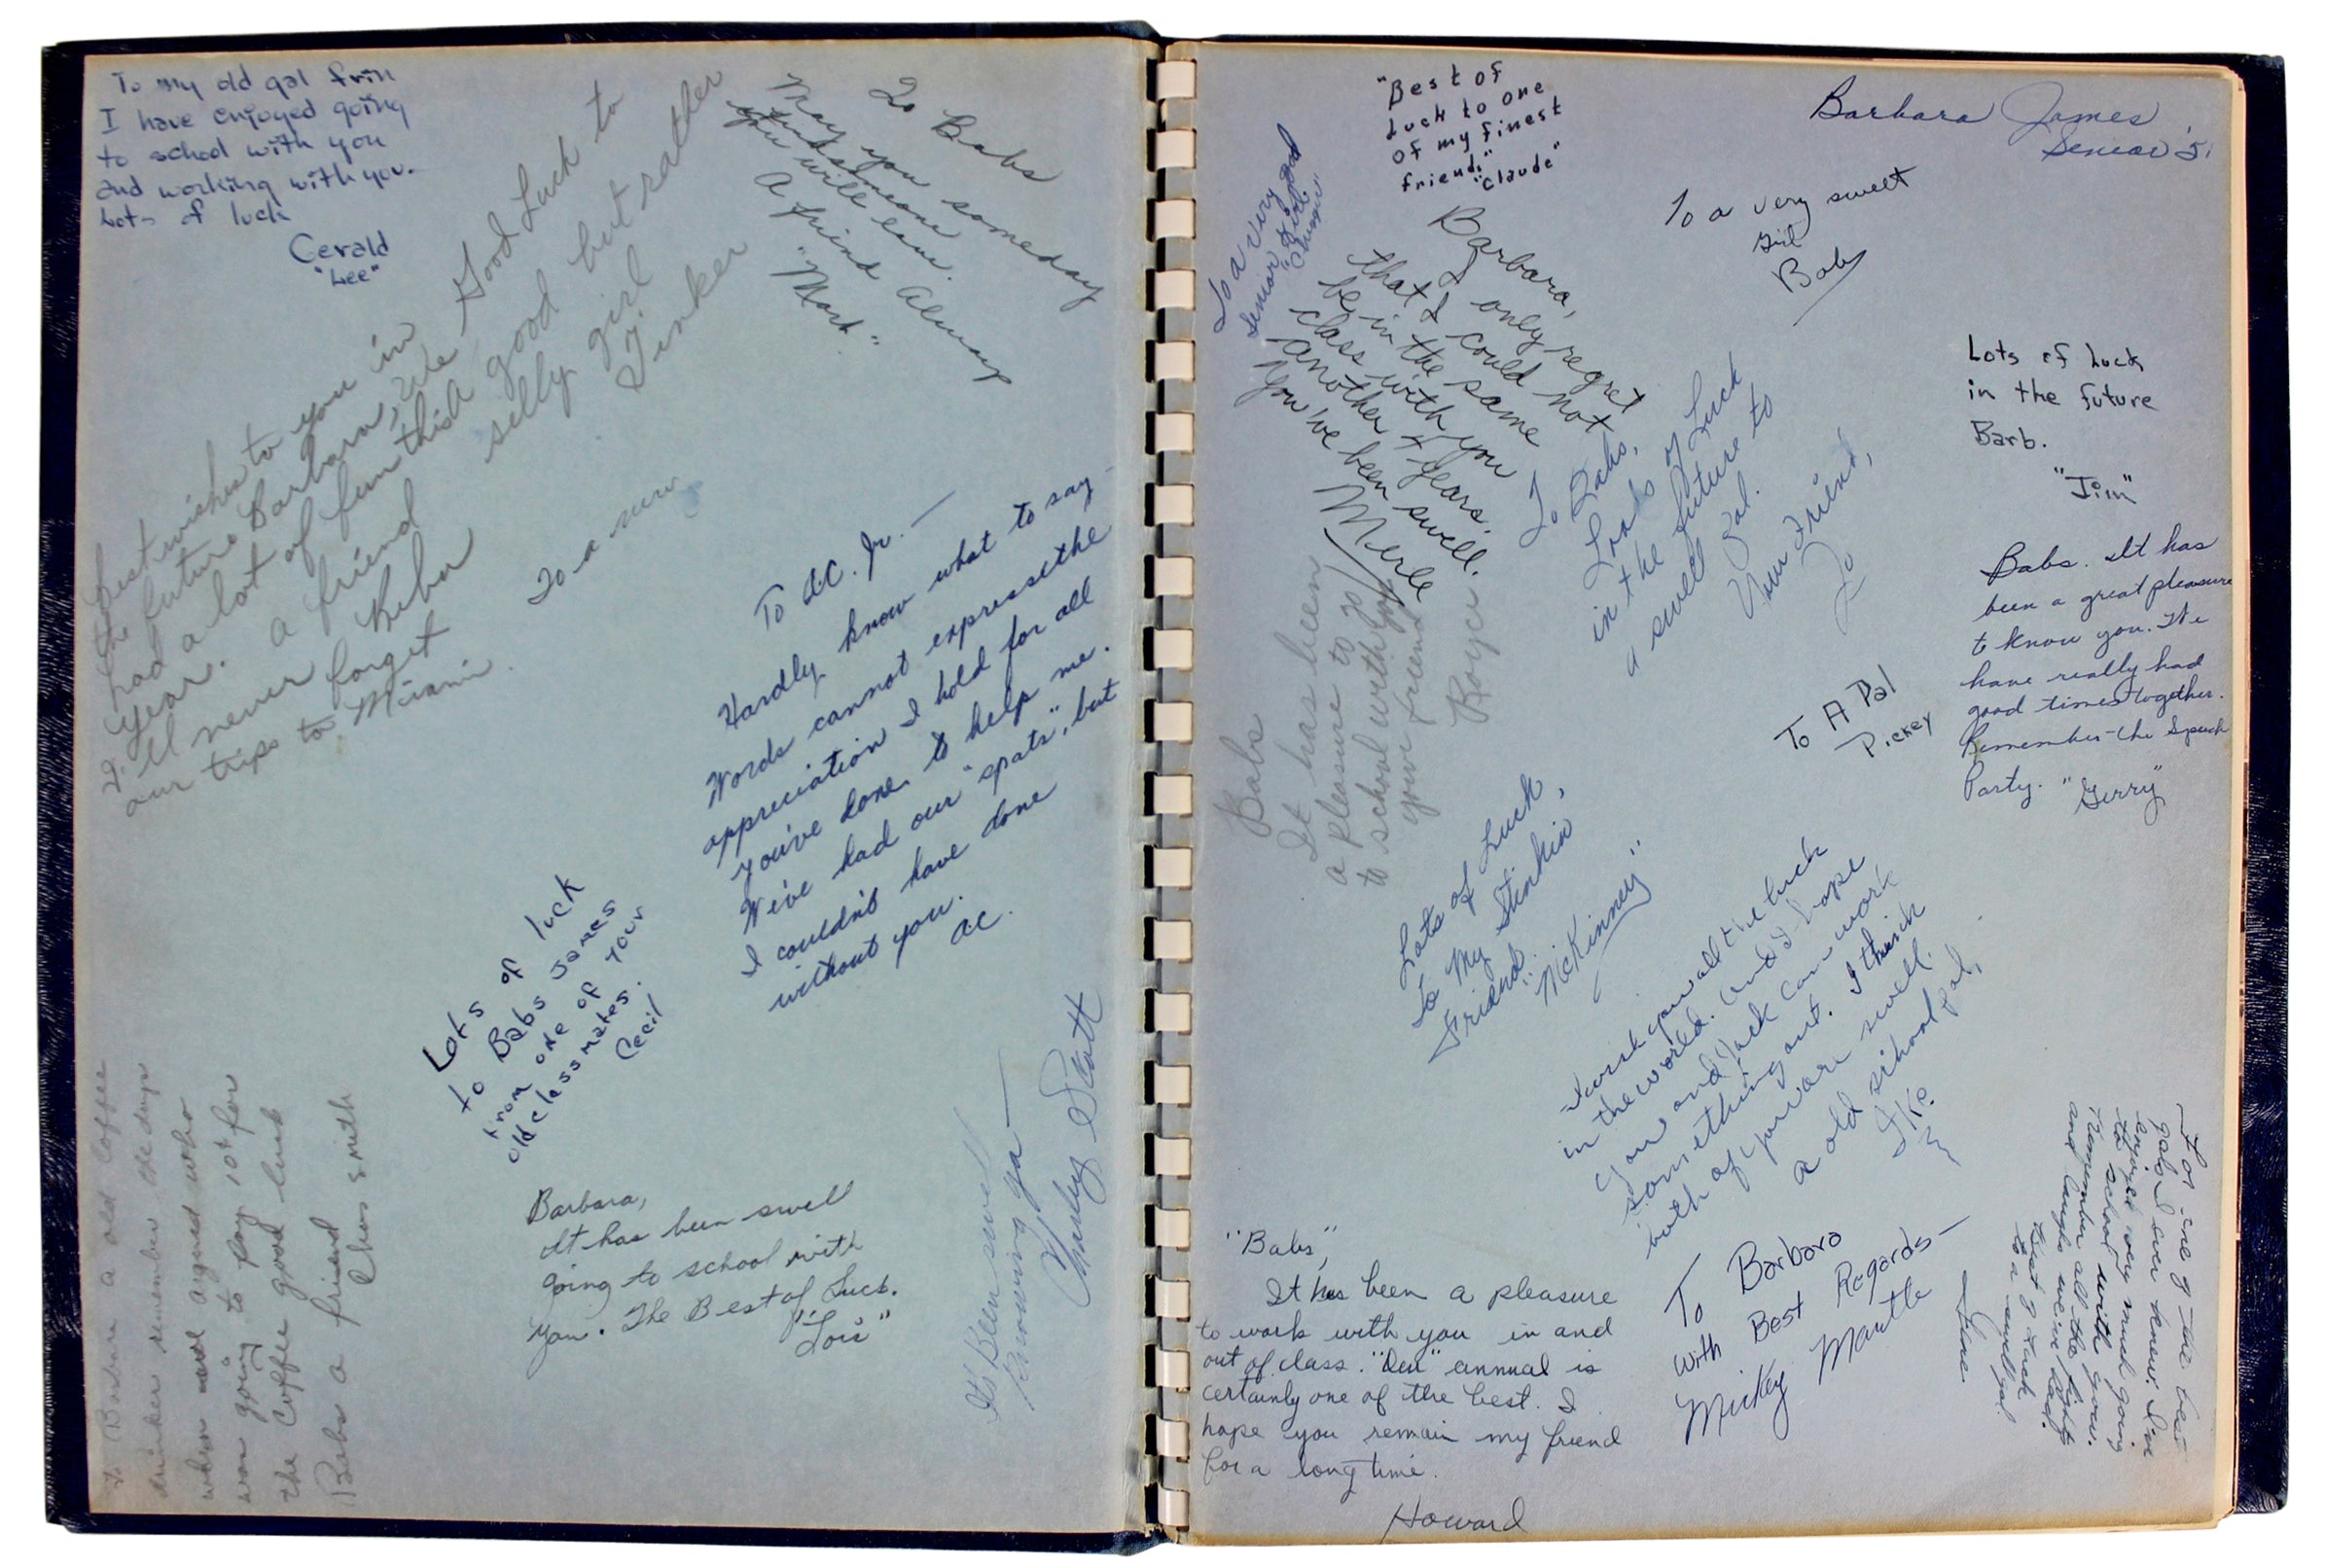 To my old gal frin
I have enjoyed going
to school with you
and working with you.
Lots of luck
Gerald
"Lee"
Good Luck to
good but rather
silly girl
Tinker
To Babs
May you someday
you will earn.
A friend Always
"Mark"
Best wishes to you in
the future Barbara, We
had a lot of fun this
year. A friend
Reba
I'll never forget
our trips to Miami.
To a new
To A.C. Jr. —
Hardly know what to say
Words cannot express the
appreciation I hold for all
you've done to help me.
We've had our "spats", but
I couldn't have done
without you.
AC.
Lots of luck
to Babs James
from one of your
old classmates.
Cecil
To Barbara a old coffee
drinker remember the days
when we argued who
was going to pay 10¢ for
the coffee good luck
Babs a friend
Chas Smith
Barbara,
It has been swell
going to school with
you. The Best of Luck.
"Lois"
It's Been swell
knowing ya —
Charley Scott
Barbara James
Senior
"Best of
Luck to one
of my finest
friend."
"Claude"
To a very good
Senior Girl
To a very sweet
girl
Bob
Barbara,
I only regret
that I could not
be in the same
class with you
another 4 years.
You've been swell.
Merle
To Babs,
Loads of Luck
in the future to
a swell gal.
Your Friend,
Jo
Lots of Luck
in the future
Barb.
"Jim"
Babs. It has
been a great pleasure
to know you. We
have really had
good times together.
Remember the Speech
Party. "Gerry"
To A Pal
Pickey
Babs
It has been
a pleasure to go
to school with you
your friend
Royce
Lots of Luck,
to My Stinkin
Friend.
"McKinney"
I wish you all the luck
in the world. And I hope
you and Jack can work
something out. I think
both of you are swell.
a old school pal,
Ike
"Babs",
It has been a pleasure
to work with you in and
out of class. "Our" annual is
certainly one of the best. I
hope you remain my friend
for a long time.
Howard
To Barbara
With Best Regards —
Mickey Mantle
To one of the best
gals I ever knew. I've
enjoyed very much going
to school with you.
Remember all the fights
and laughs we've had.
Best of Luck
to a swell gal.